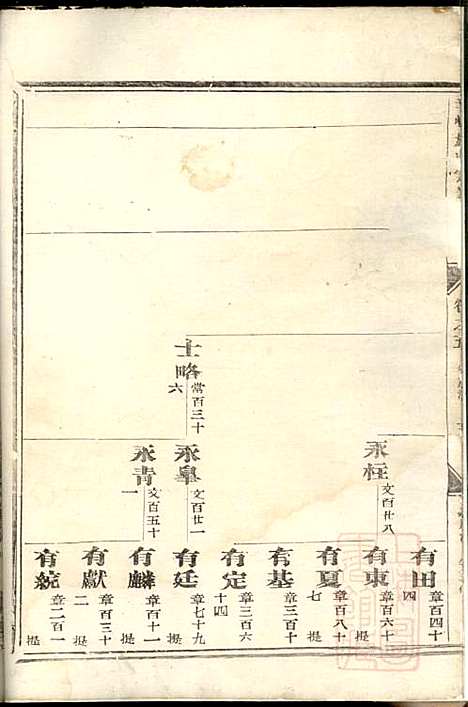 卷之五
士略
常百三十六
永柱
文百廿八
永皐
文百廿一
永青
文百五十一
有田
章百四十四
有東
章百六十
提
有夏
章百八十七
提
有基
章三百十
提
有定
章三百六十四
有廷
章七十九
提
有麟
章百十一
提
有獻
章百三十二
提
有統
章二百一
提